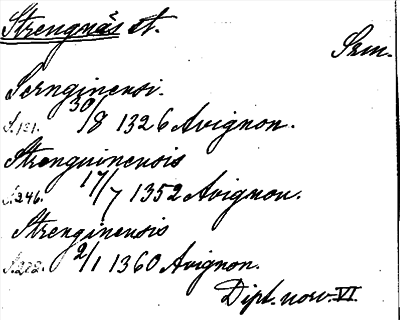 Strengnäs st.
Szm.
Sernginensi.
S. 121. 30/8 1326 Avignon.
Strenguinensis
S. 246. 17/7 1352 Avignon.
Strenginensis
S. 272. 2/1 1360 Avignon.
Dipl. norv. VI.